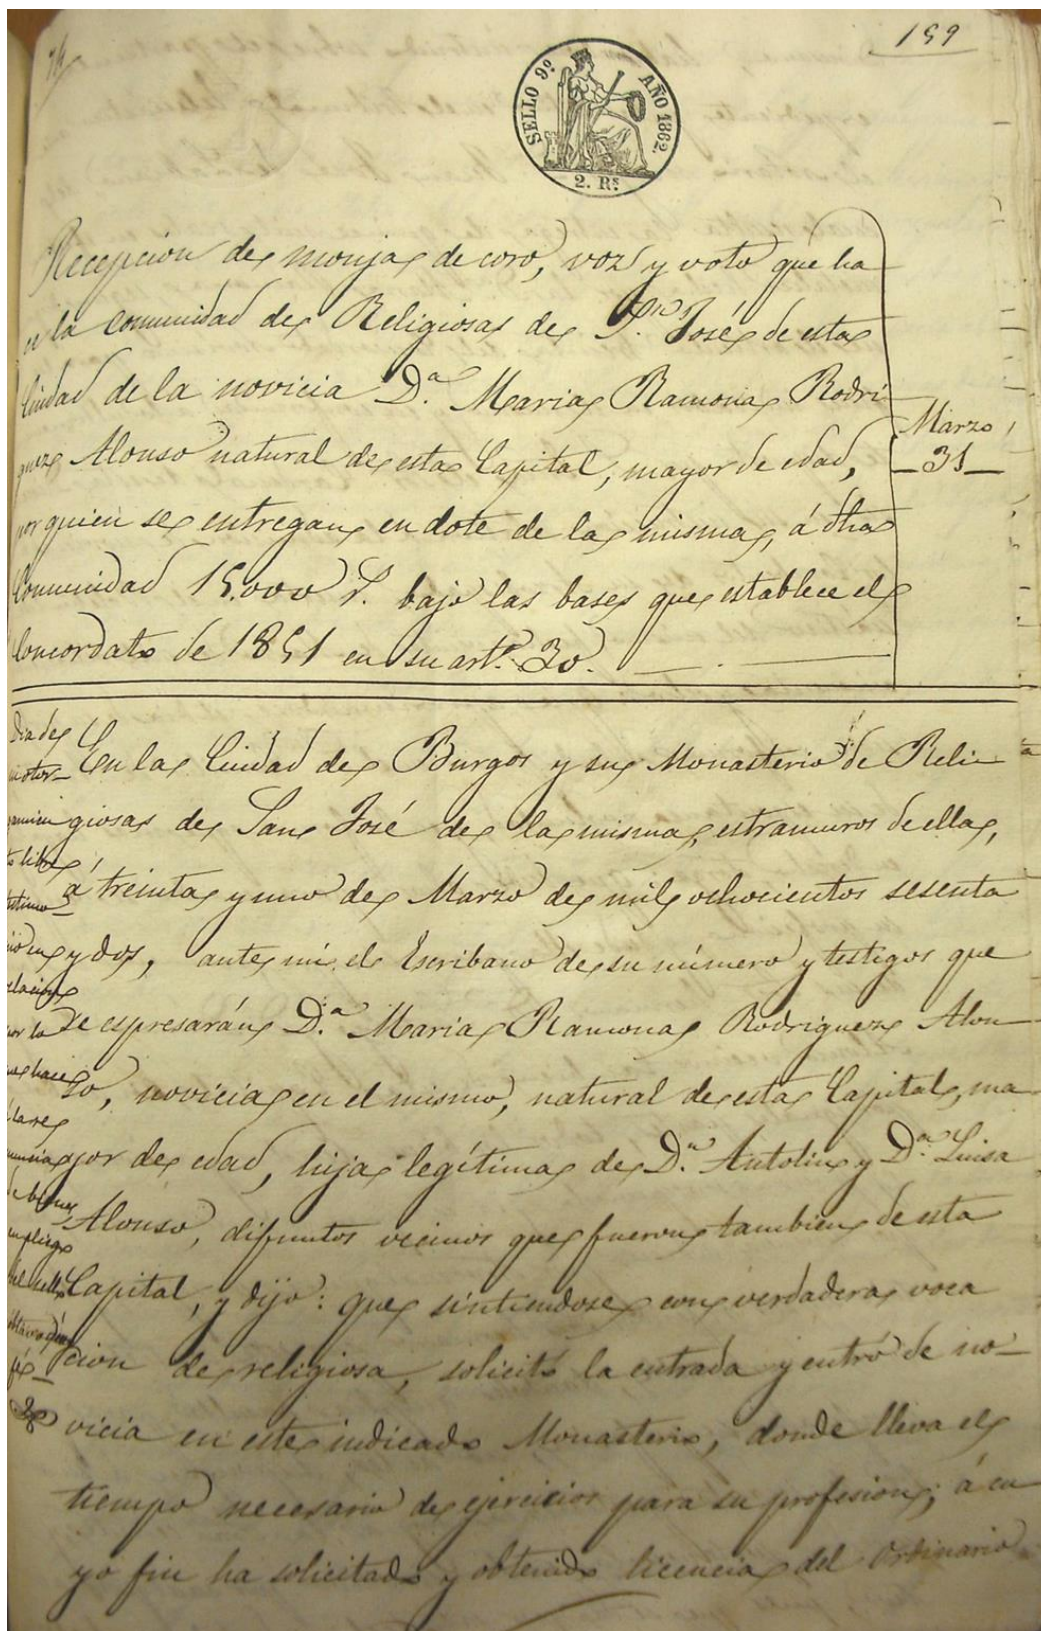 74
159
SELLO 9º AÑO 1862.
2. Rs.
Recepcion de monja de coro, voz y voto que ha
ce la comunidad de Religiosas de Sn. José de esta
Ciudad de la novicia Da. Maria Ramona Rodri
guez Alonso natural de esta Capital, mayor de edad,
por quien se entregan en dote de la misma, á dha
Comunidad 15.000 r. bajo las bases que establece el
Concordato de 1851 en su artº. 30.
Marzo
31
En la Ciudad de Burgos y su Monasterio de Reli
giosas de San José de la misma, estramuros de ella,
á treinta y uno de Marzo de mil ochocientos sesenta
y dos, ante mi el Escribano de su número y testigos que
se espresarán Da. Maria Ramona Rodriguez Alon
so, novicia en el mismo, natural de esta Capital, ma
yor de edad, hija legítima de Dn. Antolin y Da. Luisa
Alonso, difuntos vecinos que fueron tambien de esta
Capital, y dijo: que sintiendose con verdadera voca
cion de religiosa, solicitó la entrada y entró de no
vicia en este indicado Monasterio, donde lleva el
tiempo necesario de ejercicios para su profesion; á cu
yo fin ha solicitado y obtenido licencia del Ordinario
Dia de
otor
gamien
to libré
testimo
nio en
relacion
por la
que hace
la re
nuncia
de bienes
en pliego
del sello
fé